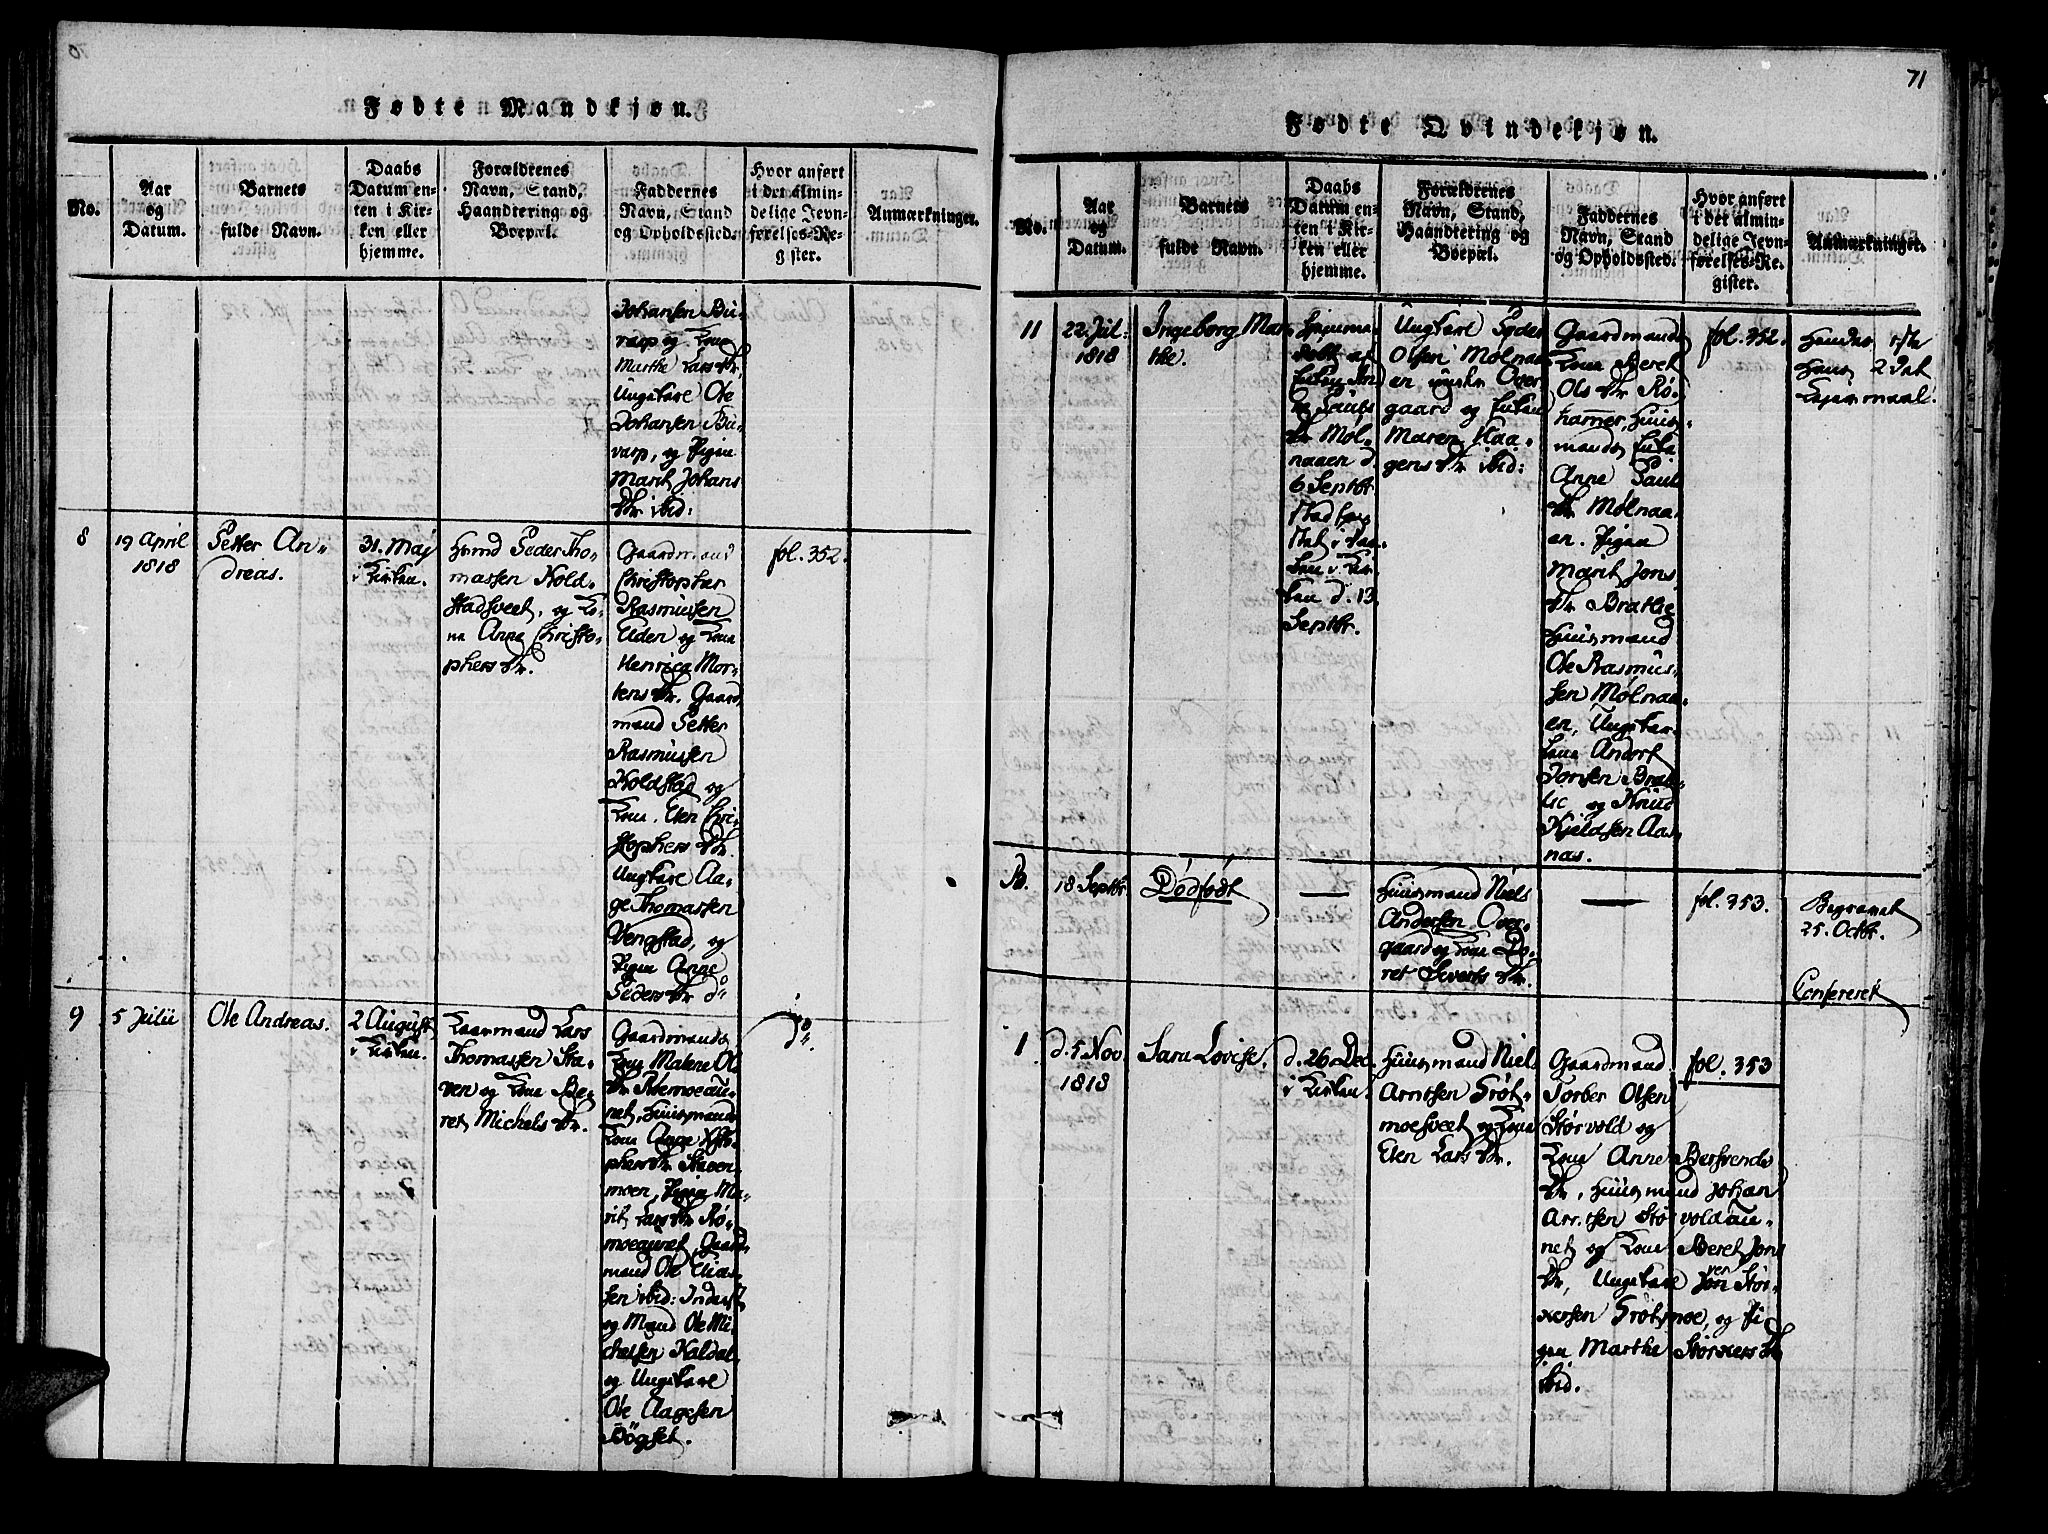 70
Fødte Mandkjøn.
No.
Aar
og
Datum.
Barnets
fulde Navn.
Daabs
Datum en-
ten i Kir-
ken eller
hjemme.
Forældrenes
Navn, Stand,
Haandtering og
Boepæl.
Faddernes
Navn, Stand
og Opholdssted.
Hvor anført
i det almin-
delige Jevn-
førelses-Re-
gister.
Anmærkninger.
Johansen Bu-
varp og Kone
Marthe Lars Dtr.
Ungkarl Ole
Johansen Bu-
varp, og Pigen
Marit Johans
Dtr. ibid:
8
19 April
1818
Petter An-
dreas.
31. Maj
i Kirken.
Huusmd Peder Tho-
massen Kold-
stadsveet, og Ko-
ne Anne Christo-
phers Dtr.
Gaardmand
Christopher
Rasmussen
Eiden og Kone
Henrica Mor-
tens Dtr. Gaard
mand Petter
Rasmussen
Koldstad og
Kone Elen Chri-
stophers Dtr.
Ungkarl Aa-
ge Thomassen
Vengstad, og
Pigen Anne
Peders Dtr. do
fol. 352.
9
5 Julii
Ole Andreas.
2 August
i Kirken.
Lars
Thomassen Sta-
ven og Kone Be-
ret Michels Dtr.
Gaardmands
Kone Malene Ols
Dtr. Rømoeau-
net, Huusmands
Kone Anne Xsto-
phers Dtr. Staven-
moen, Pigen Ma-
rit Lars Dtr. Rø-
moeaunet, Gaard
mand Ole Elias-
sen ibid: Inderst
og Mand Ole Mi-
chelsen Kaldal
og Ungkarl
Ole Aagesen
Bøgset.
do
71
Fødte Qvindekjøn.
No.
Aar
og
Datum.
Barnets
fulde Navn.
Daabs
Datum en-
ten i Kir-
ken eller
hjemme.
Forældrenes
Navn, Stand,
Haandtering og
Boepæl.
Faddernes
Navn, Stand
og Opholdssted.
Hvor anført
i det almin-
delige Jevn-
førelses-Re-
gister.
Anmærkninger.
11
22 Jul:
1818
Ingeborg Mar-
the.
Hjemme-
døbt af
Enken An-
ne Pauls
Dtr. Møl-
naaen d.
6 Septbr.
Stadfæ-
stet i Daa-
ben i Kir-
ken d. 13
Septbr.
Ungkarl Peder
Olsen Mølnaa-
en under Over-
gaard og Enken
Maren Haa-
gens Dtr. ibid:
Gaardmands
Kone Beret
Ols Dtr. Rø-
hamer, Huus-
mands Enke
Anne Pauls
Dtr. Mølnaa-
en. Pigen
Marit Jons
Dtr. Bratlie
Huusmand
Ole Rasmus-
sen Mølnaa-
en, Ungkar-
lene Andort
Jonsen Brat-
lie og Knud
Kjeldsen Aas-
næs.
fol. 352.
Hendes 1ste
Hans 2det
Lejermaal.
B.
18 Septbr.
Dødfødt
—
Huusmand Niels
Andersen Over-
gaard og Kone Be-
ret Siverts Dtr.
—
fol. 353.
Begravet
25. Octbr.
Confereret
1
d. 5 Nov.
1818
Sara Lovise.
d. 26 Dec.
i Kirken.
Huusmand Niels
Arntsen Frøt-
moesveet og Kone
Elen Lars Dtr.
Gaardmand
Torber Olsen
Størvold og
Kone Anne Bersvends
Dtr. Huusmand Johan
Arntsen Størvoldau-
net og Kone Beret Jons
Dtr, Ungkarl Jon Stør-
ver
xersen Frøtmoe, og Pi-
gen Marthe Størxers Dtr
ibid.
fol. 353